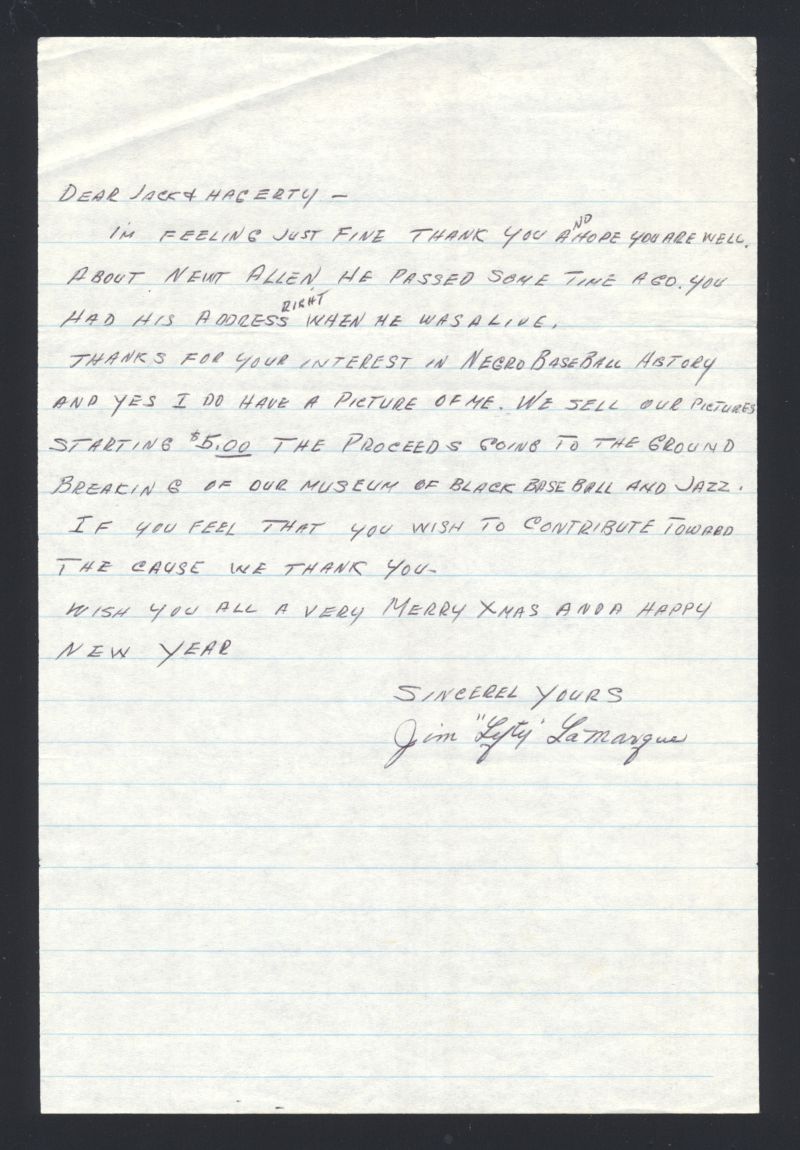 DEAR JACK & HAGERTY —
I'M FEELING JUST FINE THANK YOU AND HOPE YOU ARE WELL.
ABOUT NEWT ALLEN, HE PASSED SOME TIME AGO. YOU
HAD HIS ADDRESS RIGHT WHEN HE WAS ALIVE.
THANKS FOR YOUR INTEREST IN NEGRO BASEBALL HISTORY
AND YES I DO HAVE A PICTURE OF ME. WE SELL OUR PICTURES
STARTING $5.00 THE PROCEEDS GOING TO THE GROUND
BREAKING OF OUR MUSEUM OF BLACK BASEBALL AND JAZZ.
IF YOU FEEL THAT YOU WISH TO CONTRIBUTE TOWARD
THE CAUSE WE THANK YOU—
WISH YOU ALL A VERY MERRY XMAS AND A HAPPY
NEW YEAR
SINCEREL YOURS
Jim "Lefty" LaMarque